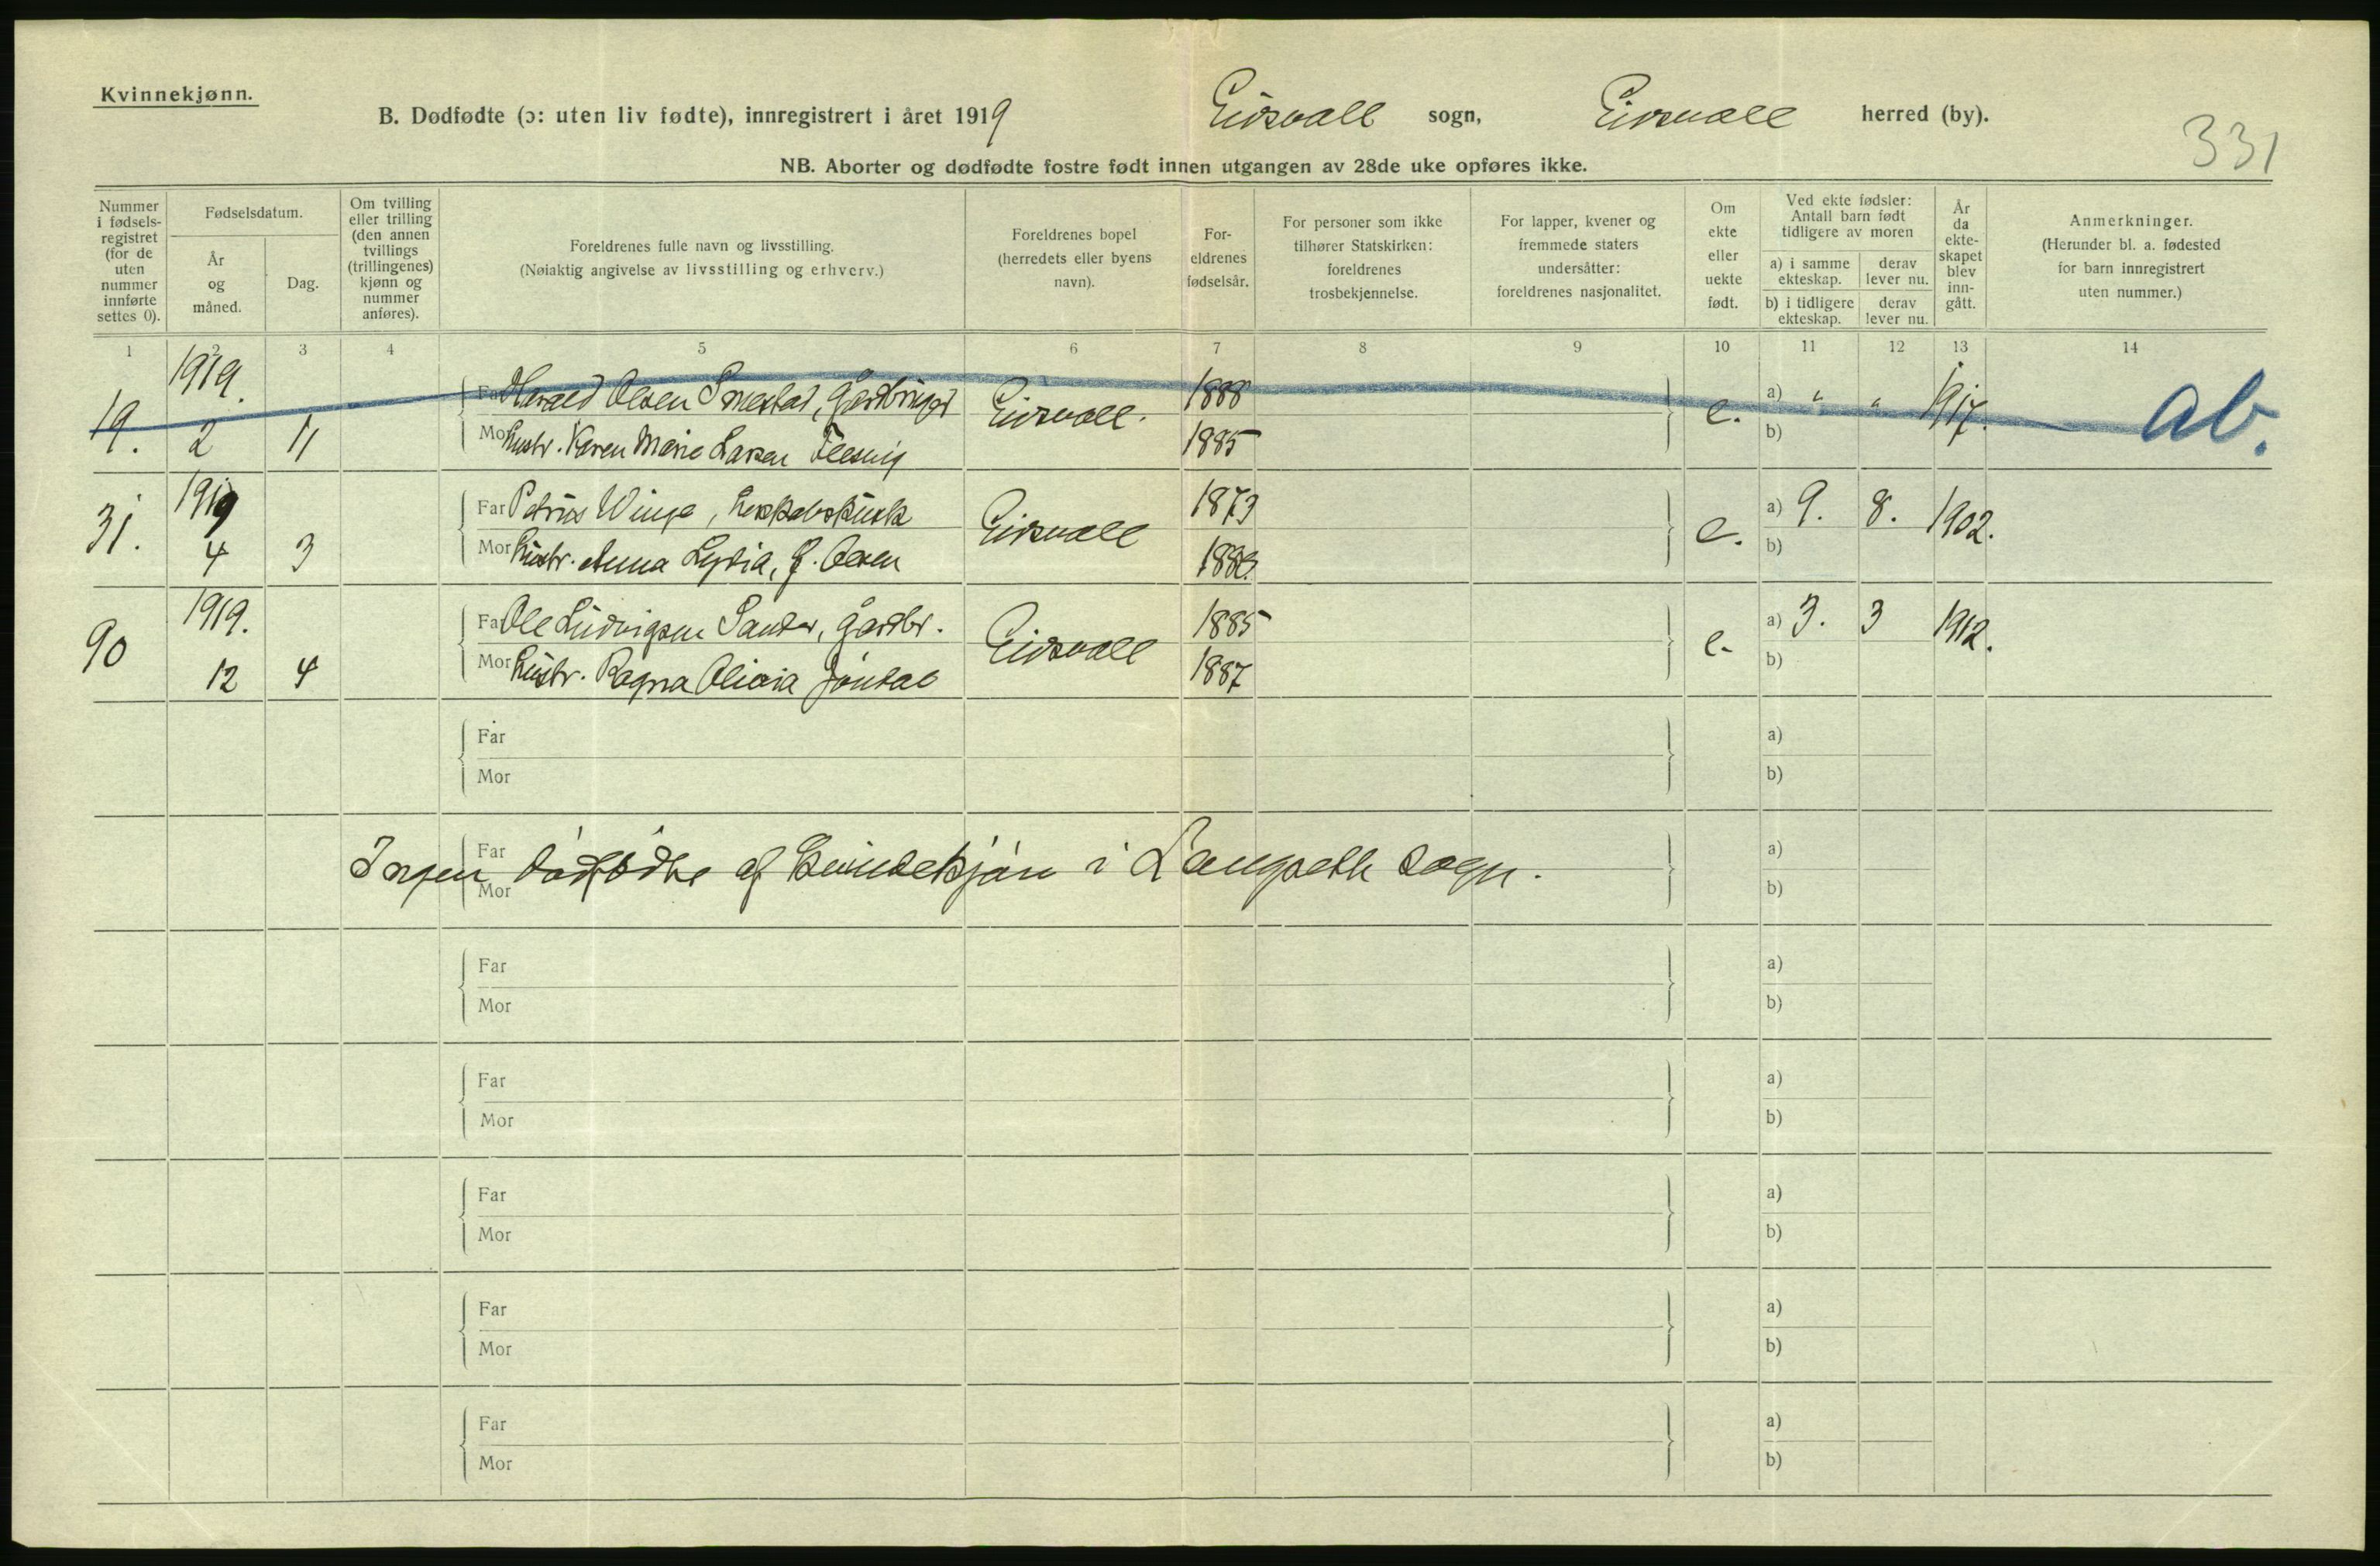 Kvinnekjønn.
B. Dødfødte (ɔ: uten liv fødte), innregistrert i året 1919 Eidsvall sogn, Eidsvall herred (by).
331
NB. Aborter og dødfødte fostre født innen utgangen av 28de uke opføres ikke.
Nummer i fødsels-registret (for de uten nummer innførte settes 0).
Fødselsdatum.
År og måned.
Dag.
Om tvilling eller trilling (den annen tvillings (trillingenes) kjønn og nummer anføres).
Foreldrenes fulle navn og livsstilling.
(Nøiaktig angivelse av livsstilling og erhverv.)
Foreldrenes bopel (herredets eller byens navn).
For-eldrenes fødselsår.
For personer som ikke tilhører Statskirken: foreldrenes trosbekjennelse.
For lapper, kvener og fremmede staters undersåtter: foreldrenes nasjonalitet.
Om ekte eller uekte født.
Ved ekte fødsler: Antall barn født tidligere av moren
a) i samme ekteskap.
derav lever nu.
b) i tidligere ekteskap.
derav lever nu.
År da ekte-skapet blev inn-gått.
Anmerkninger.
(Herunder bl. a. fødested for barn innregistrert uten nummer.)
1 2 3 4 5 6 7 8 9 10 11 12 13 14
1919. Far Harald Olsen Smestad, Gårdbruger Eidsvall. 1888 e. a) " " 1917. ab.
19. 2 11 Mor Hustr. Karen Marie Larsen 1885 b)
1919 Far Petrus Winge, Eidsvall 1873 e. a) 9. 8. 1902.
31. 4 3 Mor Hustr. Anna Lydia, f. Olsen b)
1919. Far Ole Ludvigsen Sander, gårdbr. Eidsvall 1885 e. a) 3. 3 1912.
90 12 4 Mor Hustr. Ragna Olivia 1887 b)
Far a)
Mor b)
Far a)
Ingen dødfødte af kvindekjøn i Langseth sogn.
Mor b)
Far a)
Mor b)
Far a)
Mor b)
Far a)
Mor b)
Far a)
Mor b)
Far a)
Mor b)